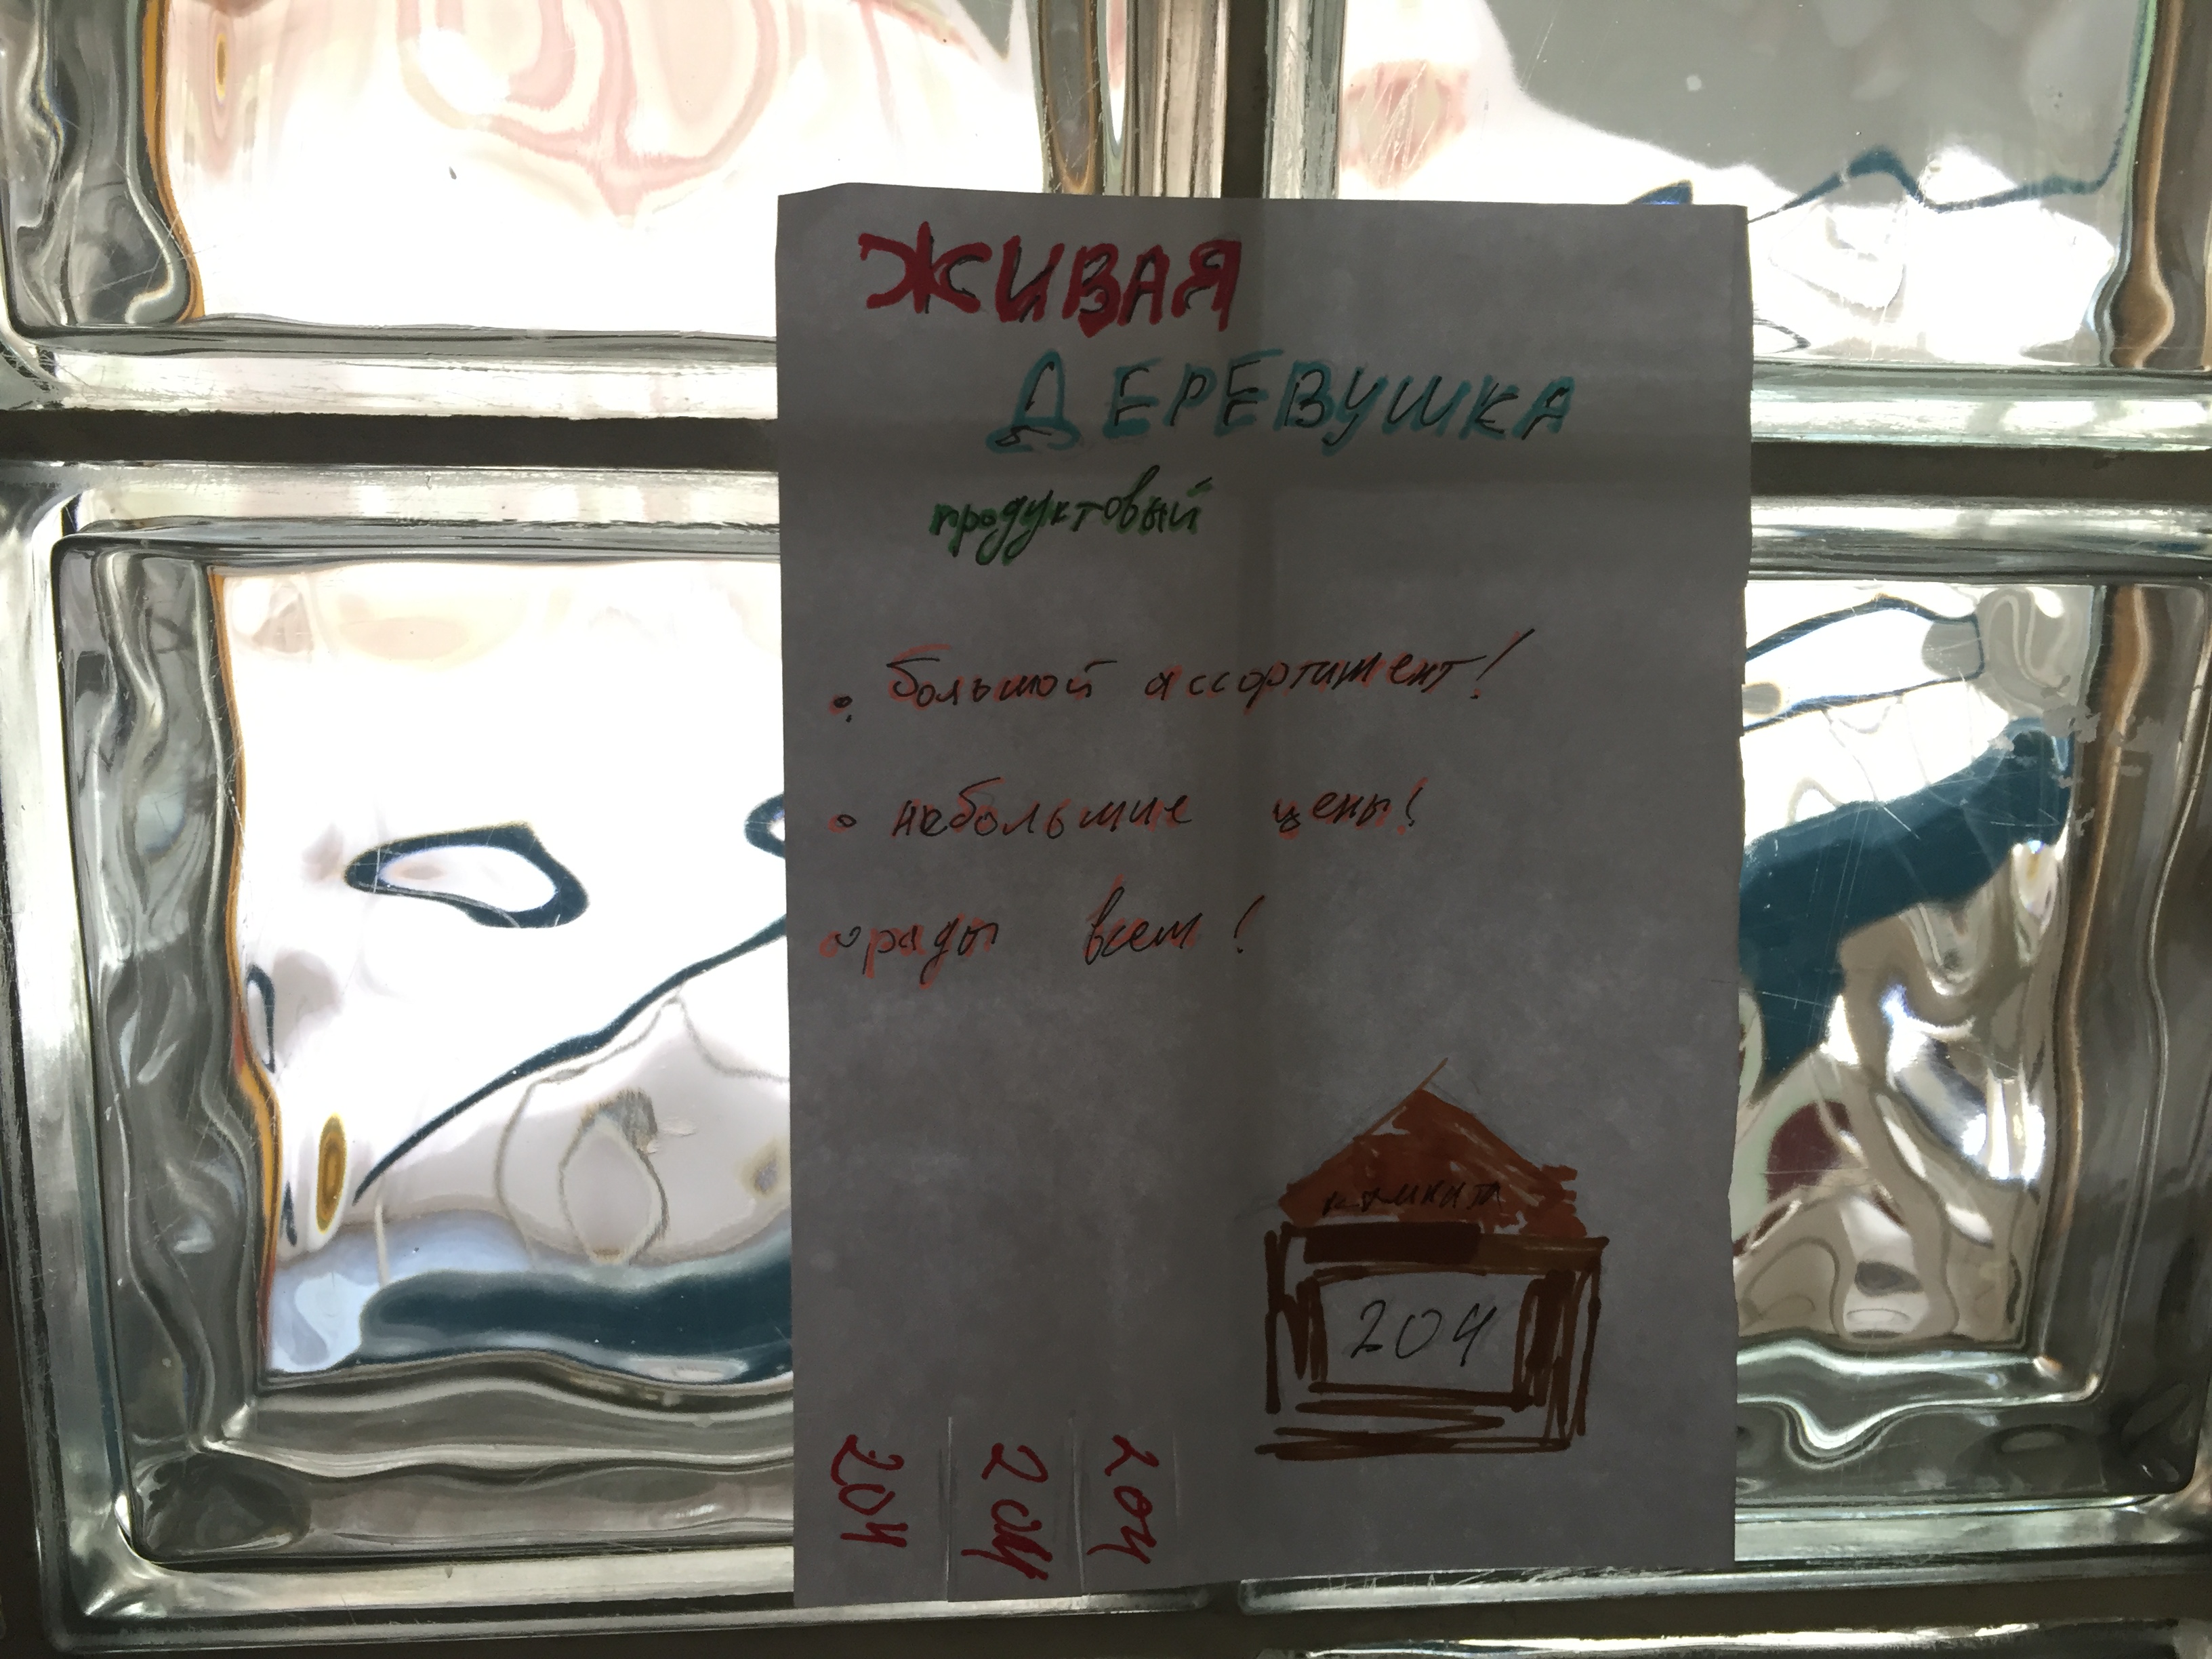 ЖИВАЯ
ДЕРЕВУШКА
продуктовый
• большой ассортимент!
• небольшие цены!
• рады всем!
комната
204
204
204
204